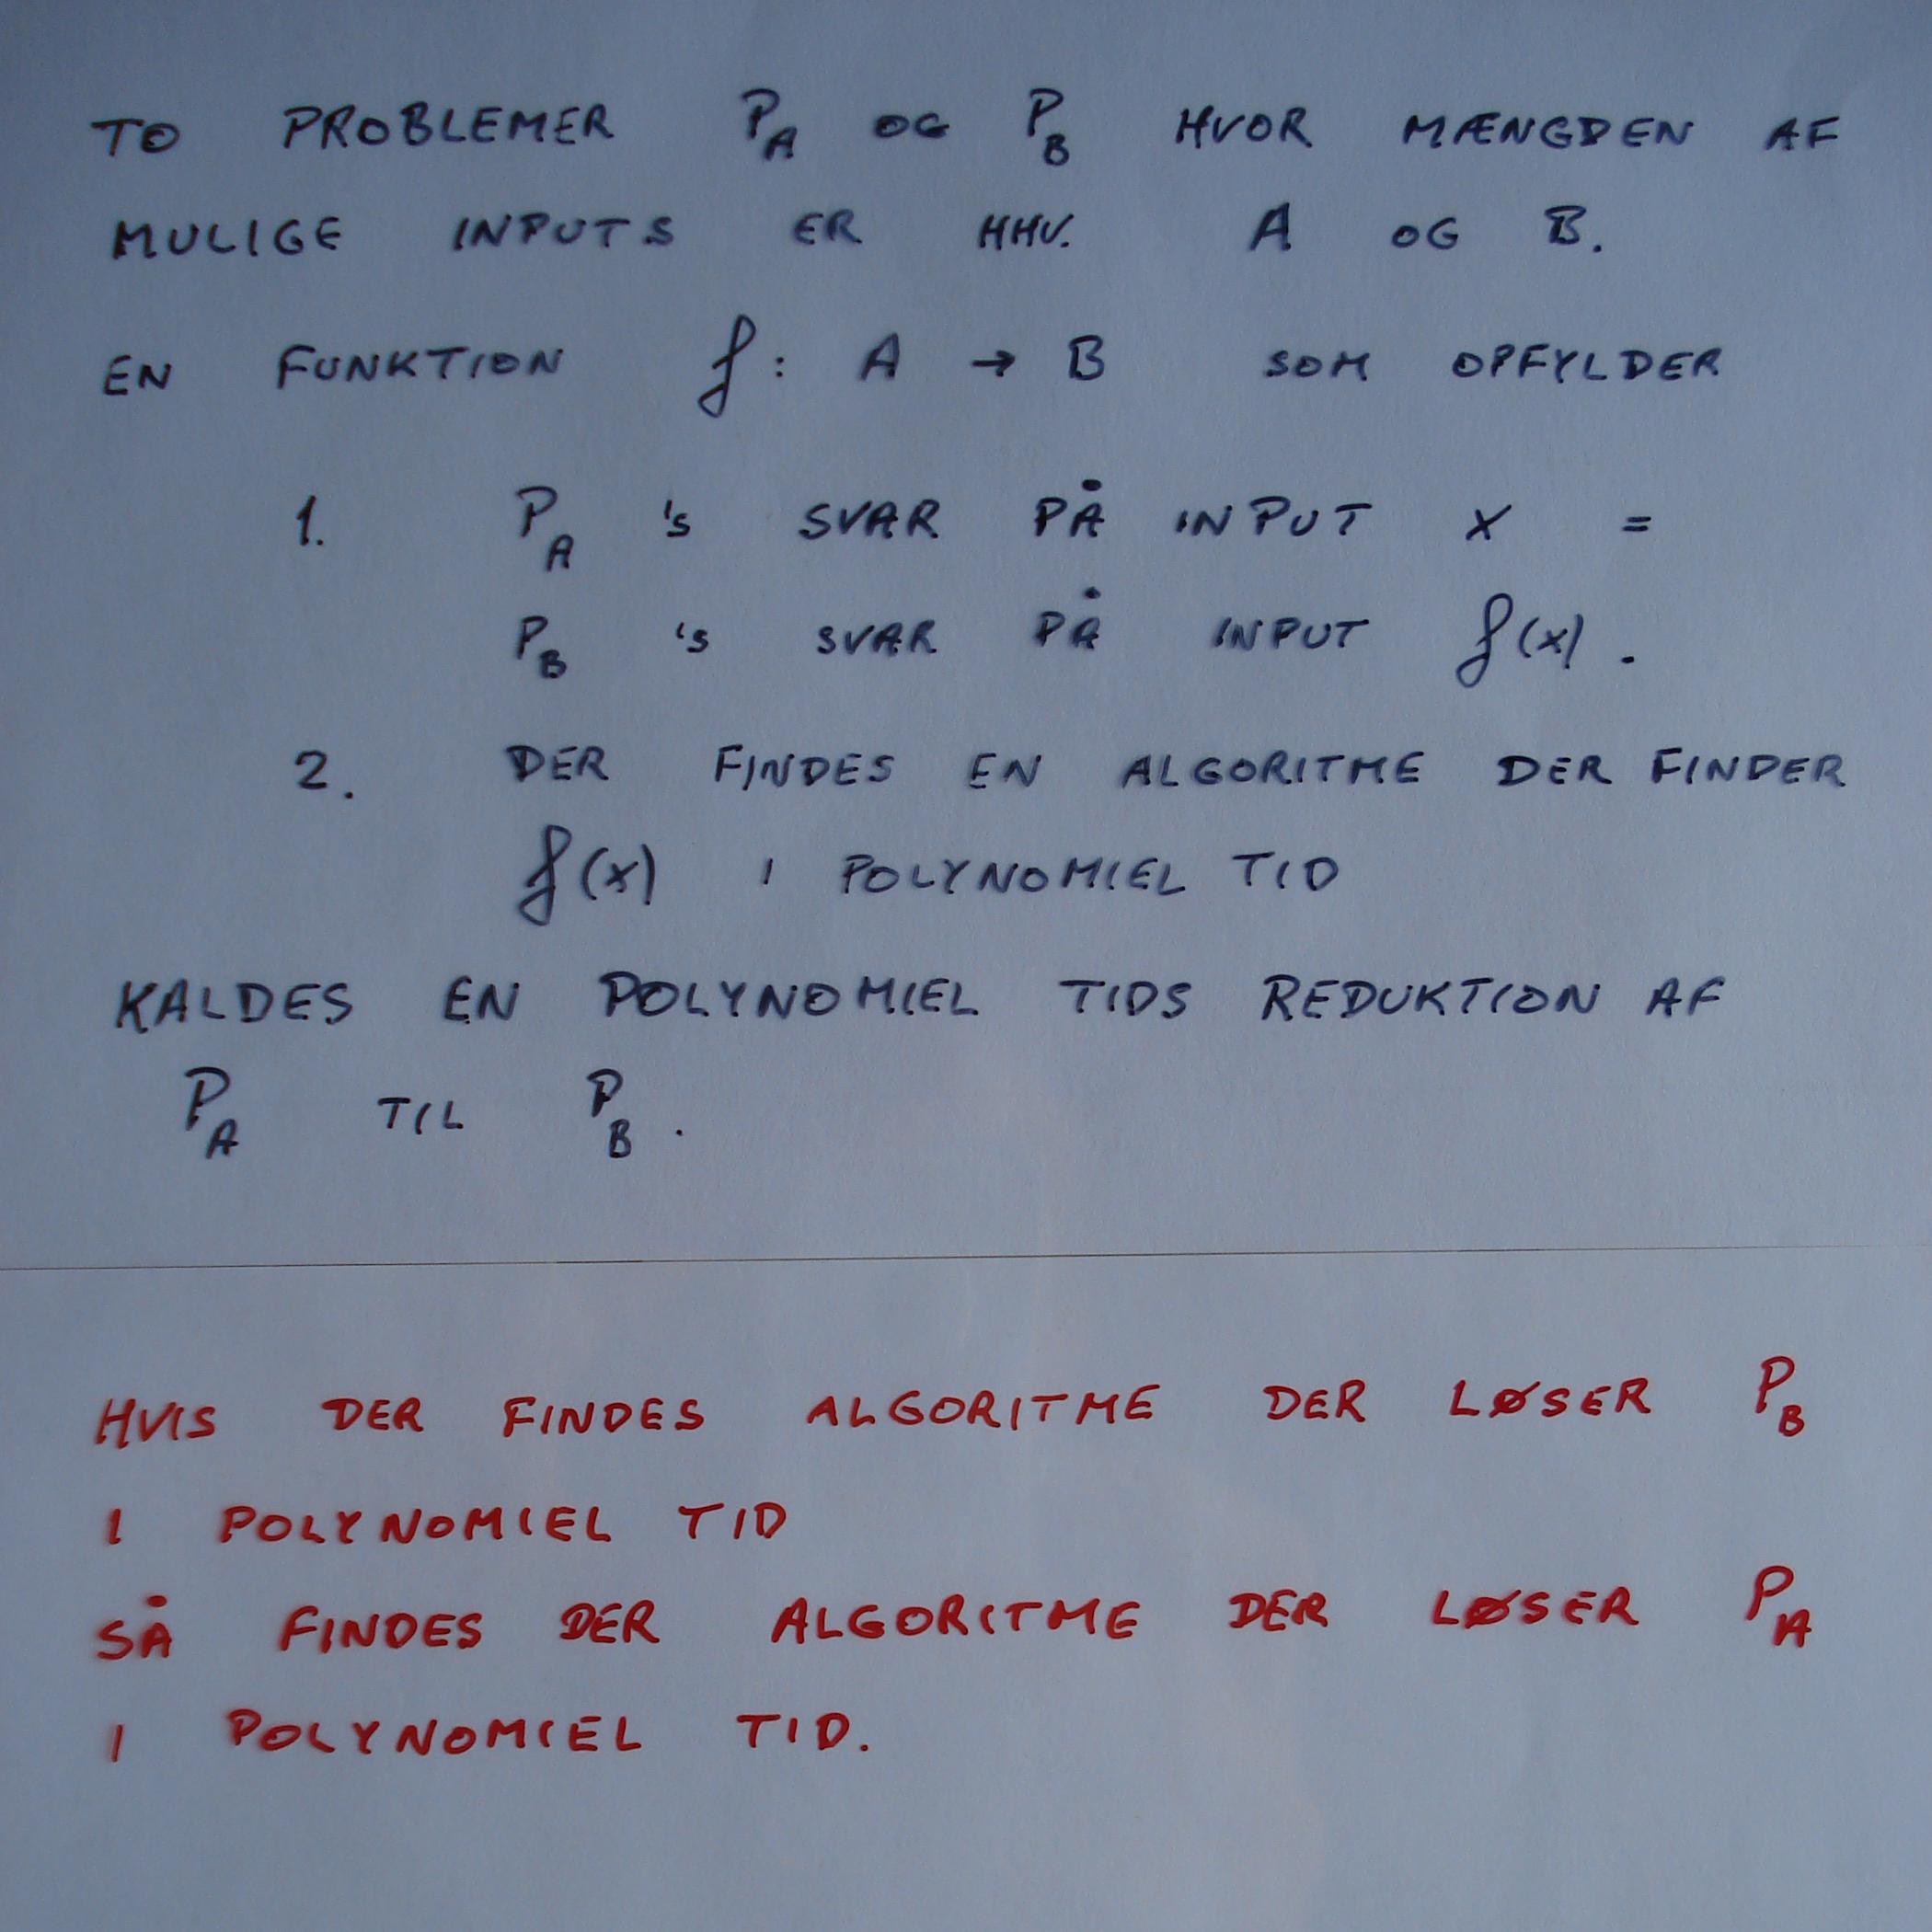 TO PROBLEMER P_A OG P_B HVOR MÆNGDEN AF
MULIGE INPUTS ER HHV. A OG B.
EN FUNKTION f: A → B SOM OPFYLDER
1. P_A 's SVAR PÅ INPUT X =
P_B 's SVAR PÅ INPUT f(x).
2. DER FINDES EN ALGORITME DER FINDER
f(x) I POLYNOMIEL TID
KALDES EN POLYNOMIEL TIDS REDUKTION AF
P_A TIL P_B.
HVIS DER FINDES ALGORITME DER LØSER P_B
I POLYNOMIEL TID
SÅ FINDES DER ALGORITME DER LØSER P_A
I POLYNOMIEL TID.